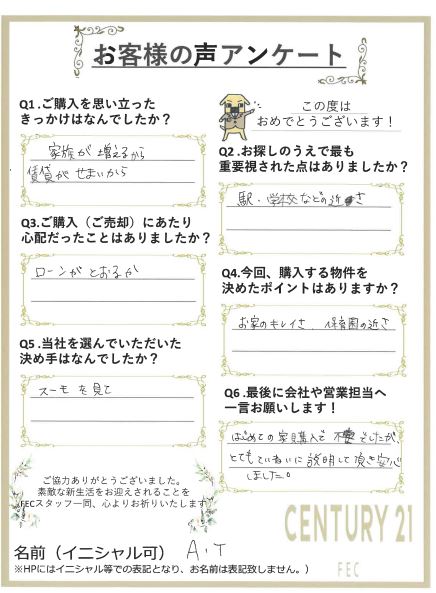 お客様の声アンケート
Q1.ご購入を思い立った
きっかけはなんでしたか？
家族が増えるから
賃貸がせまいから
この度は
おめでとうございます！
Q2.お探しのうえで最も
重要視された点はありましたか？
駅・学校などの近さ
Q3.ご購入（ご売却）にあたり
心配だったことはありましたか？
ローンがとおるか
Q4.今回、購入する物件を
決めたポイントはありますか？
お家のキレイさ、保育園の近さ
Q5.当社を選んでいただいた
決め手はなんでしたか？
スーモを見て
Q6.最後に会社や営業担当へ
一言お願いします！
はじめての家購入で不安でしたが、
とてもていねいに説明して頂き安心
しました。
ご協力ありがとうございました。
素敵な新生活をお迎えされることを
FECスタッフ一同、心よりお祈りいたします
CENTURY 21
FEC
名前（イニシャル可） A.T
※HPにはイニシャル等での表記となり、お名前は表記致しません。）